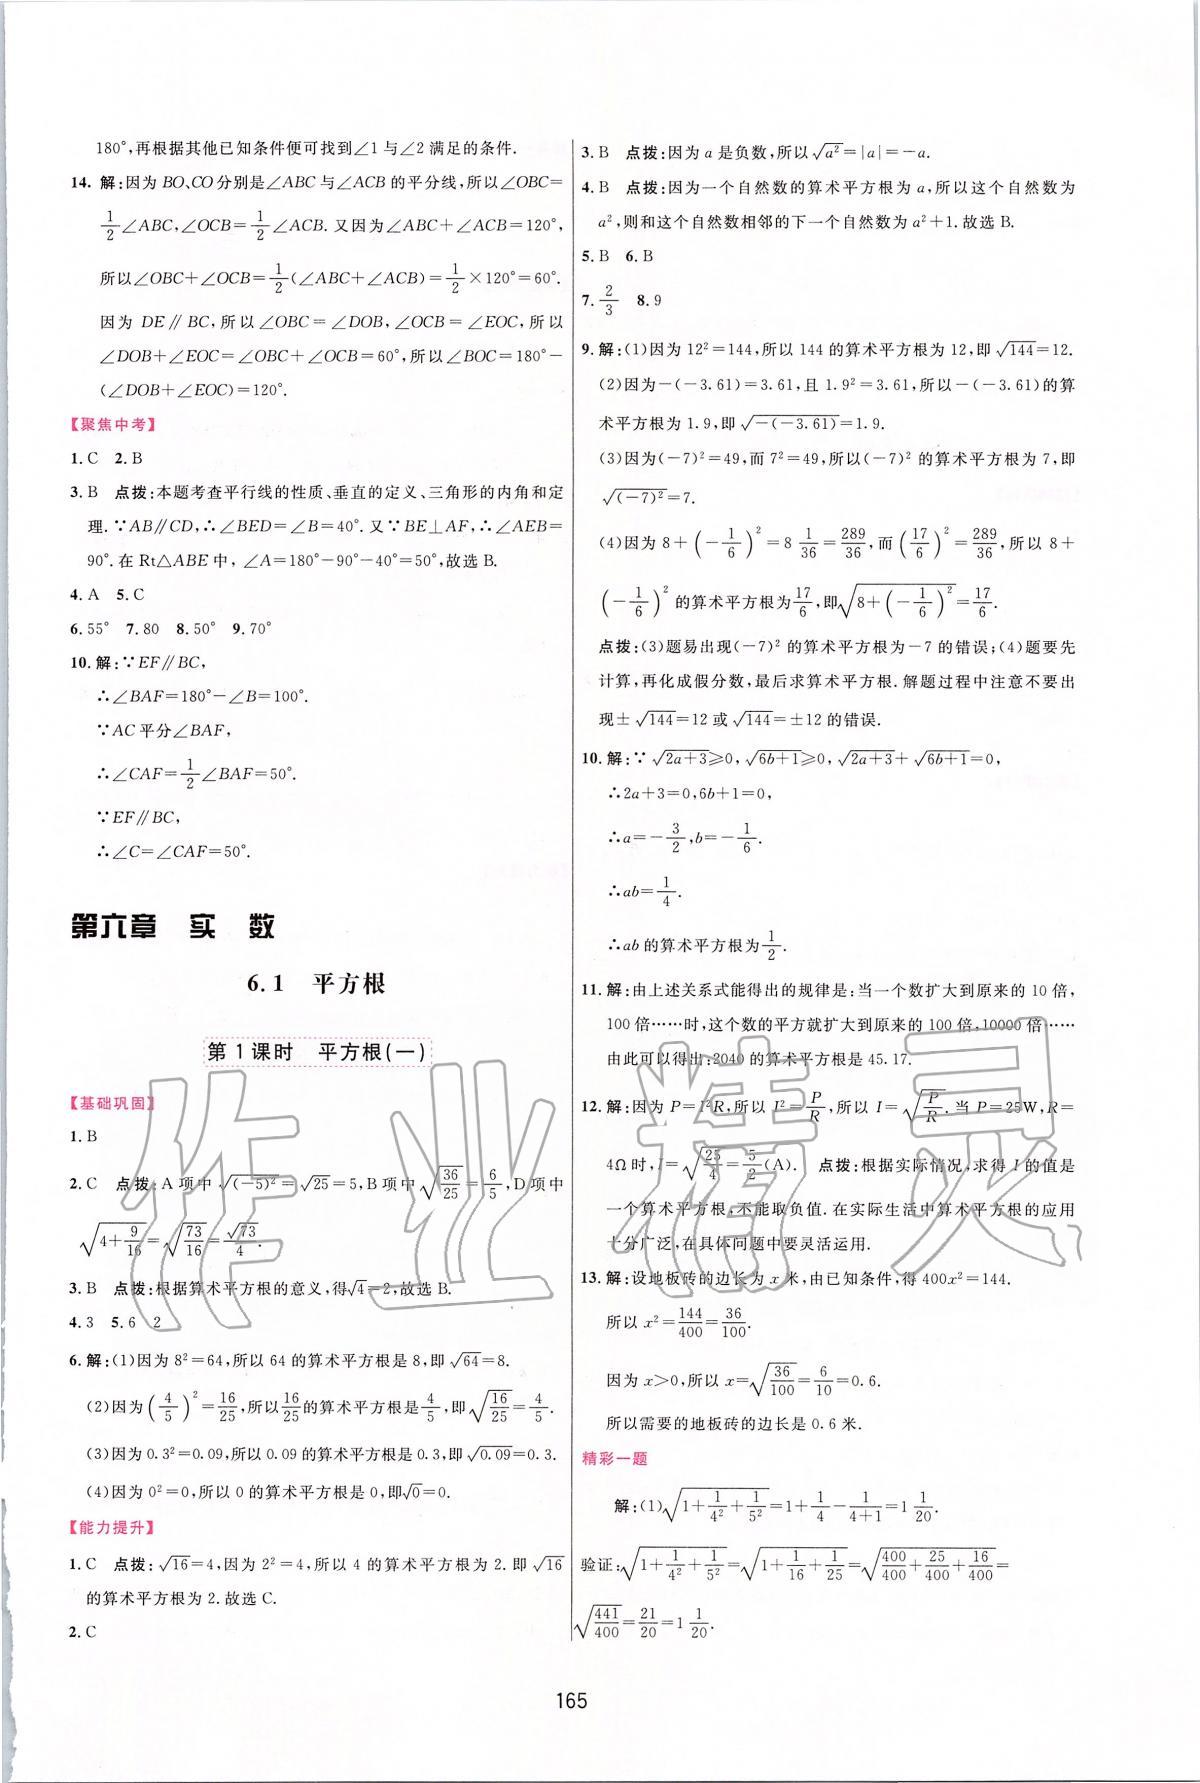 180°,再根据其他已知条件便可找到∠1与∠2满足的条件.
14. 解:因为BO、CO分别是∠ABC与∠ACB的平分线,所以∠OBC=
1/2∠ABC,∠OCB=1/2∠ACB. 又因为∠ABC+∠ACB=120°,
所以∠OBC+∠OCB=1/2(∠ABC+∠ACB)=1/2×120°=60°.
因为 DE∥BC,所以∠OBC=∠DOB,∠OCB=∠EOC,所以
∠DOB+∠EOC=∠OBC+∠OCB=60°,所以∠BOC=180°-
(∠DOB+∠EOC)=120°.
【聚焦中考】
1. C 2. B
3. B 点拨:本题考查平行线的性质、垂直的定义、三角形的内角和定
理.∵AB∥CD,∴∠BED=∠B=40°.又∵BE⊥AF,∴∠AEB=
90°.在Rt△ABE中,∠A=180°-90°-40°=50°,故选B.
4. A 5. C
6. 55° 7. 80 8. 50° 9. 70°
10. 解:∵EF∥BC,
∴∠BAF=180°-∠B=100°.
∵AC平分∠BAF,
∴∠CAF=1/2∠BAF=50°.
∵EF∥BC,
∴∠C=∠CAF=50°.
第六章 实 数
6.1 平方根
第1课时 平方根(一)
【基础巩固】
1. B
2. C 点拨:A项中√(-5)²=√25=5,B项中√(36/25)=6/5,D项中
√(4+9/16)=√(73/16)=√73/4.
3. B 点拨:根据算术平方根的意义,得√4=2,故选B.
4. 3 5. 6 2
6. 解:(1)因为8²=64,所以64的算术平方根是8,即√64=8.
(2)因为(4/5)²=16/25,所以16/25的算术平方根是4/5,即√(16/25)=4/5.
(3)因为0.3²=0.09,所以0.09的算术平方根是0.3,即√0.09=0.3.
(4)因为0²=0,所以0的算术平方根是0,即√0=0.
【能力提升】
1. C 点拨:√16=4,因为2²=4,所以4的算术平方根为2.即√16
的算术平方根为2.故选C.
2. C
3. B 点拨:因为a是负数,所以√a²=|a|=-a.
4. B 点拨:因为一个自然数的算术平方根为a,所以这个自然数为
a²,则和这个自然数相邻的下一个自然数为a²+1.故选B.
5. B 6. B
7. 2/3 8. 9
9. 解:(1)因为12²=144,所以144的算术平方根为12,即√144=12.
(2)因为-(-3.61)=3.61,且1.9²=3.61,所以-(-3.61)的算
术平方根为1.9,即√-(-3.61)=1.9.
(3)因为(-7)²=49,而7²=49,所以(-7)²的算术平方根为7,即
√(-7)²=7.
(4)因为8+(-1/6)²=8 1/36=289/36,而(17/6)²=289/36,所以8+
(-1/6)²的算术平方根为17/6,即√(8+(-1/6)²)=17/6.
点拨:(3)题易出现(-7)²的算术平方根为-7的错误;(4)题要先
计算,再化成假分数,最后求算术平方根.解题过程中注意不要出
现±√144=12或√144=±12的错误.
10. 解:∵√2a+3≥0,√6b+1≥0,√2a+3+√6b+1=0,
∴2a+3=0,6b+1=0,
∴a=-3/2,b=-1/6.
∴ab=1/4.
∴ab的算术平方根为1/2.
11. 解:由上述关系式能得出的规律是:当一个数扩大到原来的10倍,
100倍……时,这个数的平方就扩大到原来的100倍,10000倍……
由此可以得出:2040的算术平方根是45.17.
12. 解:因为P=I²R,所以I²=P/R,所以I=√(P/R).当P=25W,R=
4Ω时,I=√(25/4)=5/2(A). 点拨:根据实际情况,求得I的值是
一个算术平方根,不能取负值.在实际生活中算术平方根的应用
十分广泛,在具体问题中要灵活运用.
13. 解:设地板砖的边长为x米,由已知条件,得400x²=144.
所以x²=144/400=36/100.
因为x>0,所以x=√(36/100)=6/10=0.6.
所以需要的地板砖的边长是0.6米.
精彩一题
解:(1)√(1+1/4²+1/5²)=1+1/4-1/(4+1)=1 1/20.
验证:√(1+1/4²+1/5²)=√(1+1/16+1/25)=√(400/400+25/400+16/400)=
√(441/400)=21/20=1 1/20.
165
作业精灵